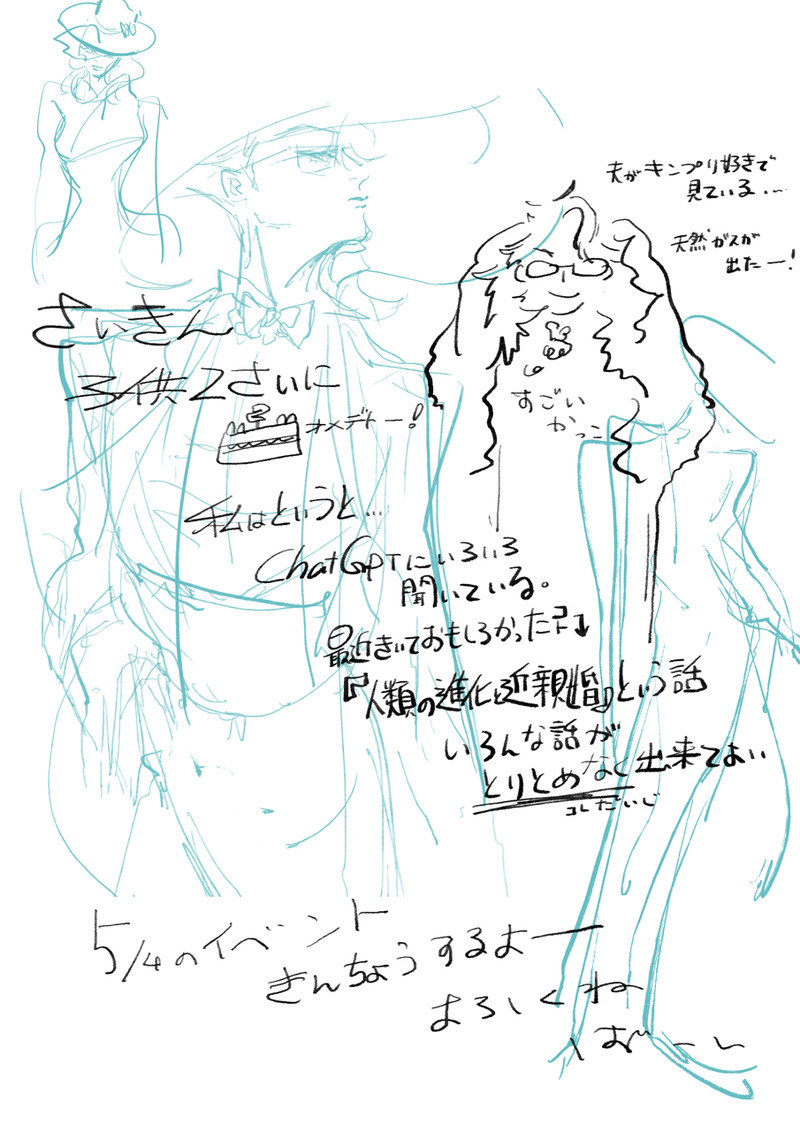 夫がキンプリ好きで
見ている...
天然ガスが
出たー!
さいきん
子供2さいに
オメデトー!
すごい
かっこ
私はというと...
ChatGPTにいろいろ
聞いている。
最近きいておもしろかった
『人類の進化と近親婚』という話
いろんな話が
とりとめなく出来てよい
コレだいじ
5/4のイベント
きんちょうするよー
よろしくね